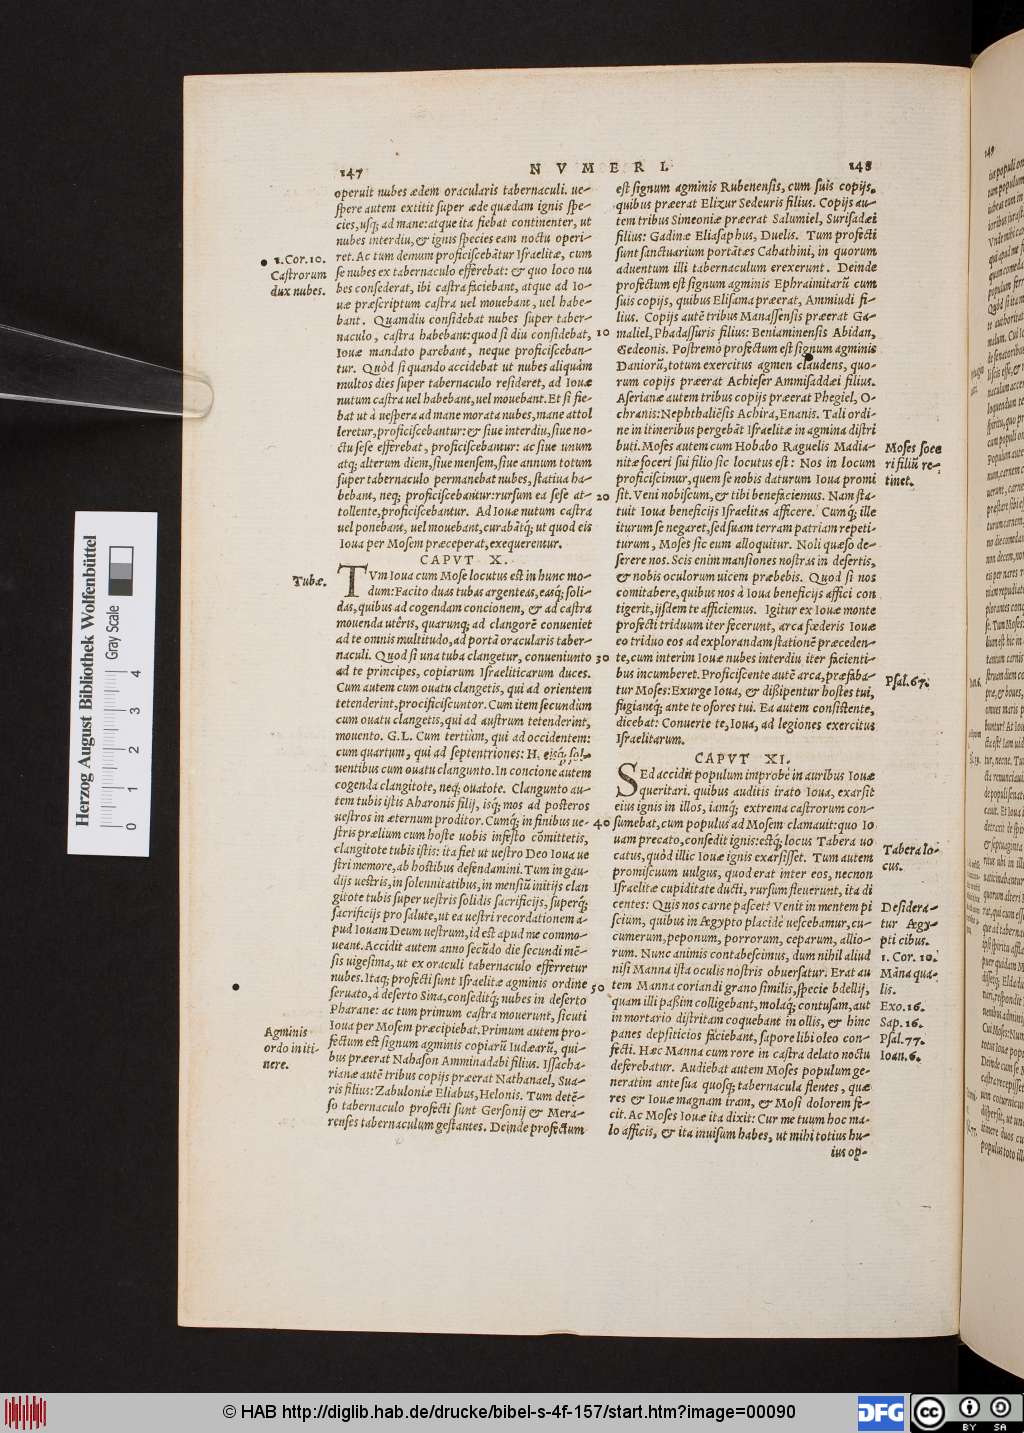 147
NVMERI.
148
operuit nubes ædem oracularis tabernaculi. ue-
ſpere autem extitit ſuper æde quædam ignis ſpe-
cies, uſq; ad mane: atque ita fiebat continenter, ut
nubes interdiu, & ignis ſpecies eam noctu operi-
ret. Ac tum demum proficiſcebãtur Iſraelitæ, cum
ſe nubes ex tabernaculo efferebat: & quo loco nu
bes conſederat, ibi caſtra faciebant, atque ad Io-
uæ præſcriptum caſtra uel mouebant, uel habe-
bant. Quamdiu conſidebat nubes ſuper taber-
naculo, caſtra habebant: quod ſi diu conſidebat,
Iouæ mandato parebant, neque proficiſceban-
tur. Quòd ſi quando accidebat ut nubes aliquàm
multos dies ſuper tabernaculo reſideret, ad Iouæ
nutum caſtra uel habebant, uel mouebant. Et ſi fie-
bat ut à ueſpera ad mane morata nubes, mane attol
leretur, proficiſcebantur: & ſiue interdiu, ſiue no-
ctu ſeſe efferebat, proficiſcebantur: ac ſiue unum
atq; alterum diem, ſiue menſem, ſiue annum totum
ſuper tabernaculo permanebat nubes, ſtatiua ha-
bebant, neq; proficiſcebantur: rurſum ea ſeſe at-
tollente, proficiſcebantur. Ad Iouæ nutum caſtra
uel ponebant, uel mouebant, curabãtq; ut quod eis
Ioua per Moſem præceperat, exequerentur.
CAPVT X.
TVm Ioua cum Moſe locutus eſt in hunc mo-
dum: Facito duas tubas argenteas, easq; ſoli-
das, quibus ad cogendam concionem, & ad caſtra
mouenda utêris, quarunq; ad clangorẽ conueniet
ad te omnis multitudo, ad portã oracularis taber-
naculi. Quod ſi una tuba clangetur, conueniunto
ad te principes, copiarum Iſraeliticarum duces.
Cum autem cum ouatu clangetis, qui ad orientem
tetenderint, proficiſcuntor. Cum item ſecundùm
cum ouatu clangetis, qui ad auſtrum tetenderint,
mouento. G.L. Cum tertiùm, qui ad occidentem:
cum quartum, qui ad ſeptentriones: H. eisq; ſol-
uentibus cum ouatu clangunto. In concione autem
cogenda clangitote, neq; ouatote. Clangunto au-
tem tubis iſtis Aharonis filij, isq; mos ad poſteros
ueſtros in æternum proditor. Cumq; in finibus ue-
ſtris prælium cum hoſte uobis infeſto cõmittetis,
clangitote tubis iſtis: ita fiet ut ueſtro Deo Ioua ue
ſtri memore, ab hoſtibus defendamini. Tum in gau-
dijs ueſtris, in ſolennitatibus, in menſiũ initijs clan
gitote tubis ſuper ueſtris ſolidis ſacrificijs, ſuperq;
ſacrificijs pro ſalute, ut ea ueſtri recordationem a-
pud Iouam Deum ueſtrum, id eſt apud me commo-
ueant. Accidit autem anno ſecũdo die ſecundi mẽ-
ſis uigeſima, ut ex oraculi tabernaculo efferretur
nubes. Itaq; profecti ſunt Iſraelitæ agminis ordine
ſeruato, à deſerto Sina, conſeditq; nubes in deſerto
Pharane: ac tum primum caſtra mouerunt, ſicuti
Ioua per Moſem præcipiebat. Primum autem pro-
fectum eſt ſignum agminis copiarũ Iudæarũ, qui-
bus præerat Nahaſon Amminadabi filius. Iſſacha-
rianæ autẽ tribus copijs præerat Nathanael, Sua-
ris filius: Zabuloniæ Eliabus, Helonis. Tum detẽ-
ſo tabernaculo profecti ſunt Gerſonij & Mera-
renſes tabernaculum geſtantes. Deinde profectum
1. Cor. 10.
Caſtrorum
dux nubes.
Tubæ.
Agminis
ordo in iti-
nere.
10
20
30
40
50
eſt ſignum agminis Rubenenſis, cum ſuis copijs,
quibus præerat Elizur Sedeuris filius. Copijs au-
tem tribus Simeoniæ præerat Salumiel, Suriſadæi
filius: Gadinæ Eliaſaphus, Duelis. Tum profecti
ſunt ſanctuarium portãtes Cahathini, in quorum
aduentum illi tabernaculum erexerunt. Deinde
profectum eſt ſignum agminis Ephraimitarũ cum
ſuis copijs, quibus Eliſama præerat, Ammiudi fi-
lius. Copijs autẽ tribus Manaſſenſis præerat Ga-
maliel, Phadaſſuris filius: Beniaminenſis Abidan,
Gedeonis. Poſtremò profectum eſt ſignum agminis
Daniorũ, totum exercitus agmen claudens, quo-
rum copijs præerat Achieſer Ammiſaddæi filius.
Aſerianæ autem tribus copijs præerat Phegiel, O-
chranis: Nephthaliẽſis Achira, Enanis. Tali ordi-
ne in itineribus pergebãt Iſraelitæ in agmina diſtri
buti. Moſes autem cum Hobabo Raguelis Madia-
nitæ ſoceri ſui filio ſic locutus eſt: Nos in locum
proficiſcimur, quem ſe nobis daturum Ioua promi
ſit. Veni nobiſcum, & tibi benefaciemus. Nam ſta-
tuit Ioua beneficijs Iſraelitas afficere. Cumq; ille
iturum ſe negaret, ſed ſuam terram patriam repeti-
turum, Moſes ſic eum alloquitur. Noli quæſo de-
ſerere nos. Scis enim manſiones noſtras in deſertis,
& nobis oculorum uicem præbebis. Quod ſi nos
comitabere, quibus nos à Ioua beneficijs affici con
tigerit, ijſdem te afficiemus. Igitur ex Iouæ monte
profecti triduum iter fecerunt, arca fœderis Iouæ
eo triduo eos ad explorandam ſtationẽ præceden-
te, cum interim Iouæ nubes interdiu iter facienti-
bus incumberet. Proficiſcente autẽ arca, præfaba-
tur Moſes: Exurge Ioua, & diſsipentur hoſtes tui,
fugiantq; ante te oſores tui. Ea autem conſiſtente,
dicebat: Conuerte te, Ioua, ad legiones exercitus
Iſraelitarum.
CAPVT XI.
SEd accidit populum improbè in auribus Iouæ
queritari. quibus auditis irato Ioua, exarſit
eius ignis in illos, iamq; extrema caſtrorum con-
ſumebat, cum populus ad Moſem clamauit: quo Io
uam precato, conſedit ignis: eſtq; locus Tabera uo
catus, quòd illic Iouæ ignis exarſiſſet. Tum autem
promiſcuum uulgus, quod erat inter eos, necnon
Iſraelitæ cupiditate ducti, rurſum fleuerunt, ita di
centes: Quis nos carne paſcet? Venit in mentem pi
ſcium, quibus in Ægypto placidè ueſcebamur, cu-
cumerum, peponum, porrorum, ceparum, allio-
rum. Nunc animis contabeſcimus, dum nihil aliud
niſi Manna iſta oculis noſtris obuerſatur. Erat au
tem Manna coriandi grano ſimilis, ſpecie bdellij,
quam illi paſsim colligebant, molaq; contuſam, aut
in mortario diſtritam coquebant in ollis, & hinc
panes depſiticios faciebant, ſapore libi oleo con-
fecti. Hæc Manna cum rore in caſtra delato noctu
deferebatur. Audiebat autem Moſes populum ge-
neratim ante ſua quoſq; tabernacula flentes, quæ
res & Iouæ magnam iram, & Moſi dolorem fe-
cit. Ac Moſes Iouæ ita dixit: Cur me tuum hoc ma-
lo afficis, & ita inuiſum habes, ut mihi totius hu-
ius op-
Moſes ſoce
ri filiũ re-
tinet.
Pſal. 67.
Tabera lo-
cus.
Deſidera-
tur Ægy-
pti cibus.
1. Cor. 10.
Mãna qua-
lis.
Exo. 16.
Sap. 16.
Pſal. 77.
Ioan. 6.
149
Herzog August Bibliothek Wolfenbüttel
Gray Scale
0 1 2 3 4
© HAB http://diglib.hab.de/drucke/bibel-s-4f-157/start.htm?image=00090
DFG
cc
BY SA